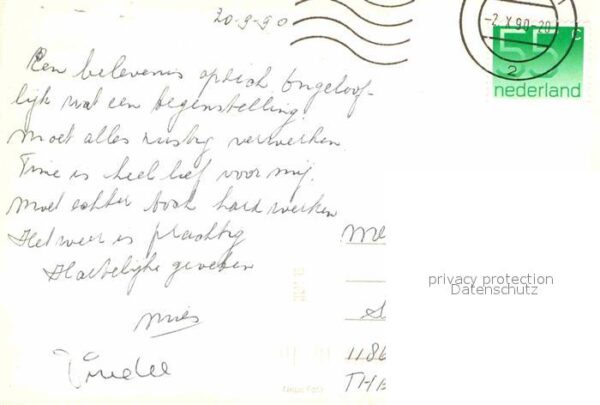 20-9-90
-2.X.90-20
2
55 c
nederland
Een belevenis op zich. Ongeloof-
lijk wat een tegenstelling.
Moet alles rustig verwerken.
Tine is heel lief voor mij.
Moet echter toch hard werken
Het weer is prachtig
Hartelijke
Mies
privacy protection
Datenschutz
1186
THE